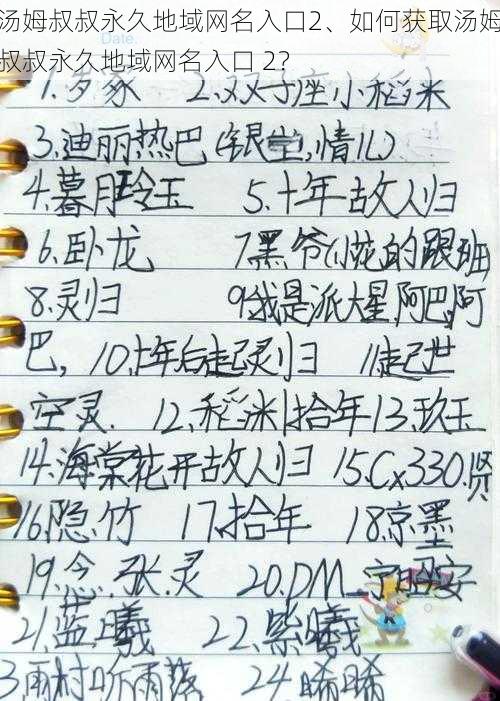 汤姆叔叔永久地域网名入口2、如何获取汤姆
叔叔永久地域网名入口 2?
1.岁家 2.双子座小稻米
3.迪丽热巴(银堂,情儿)
4.暮月玲玉 5.十年故人归
6.卧龙 7黑爷(小花的跟班
8.灵归 9.我是派大星阿巴,阿
巴, 10.十年后起灵归 11.起世
空灵. 12.稻米|拾年13.玖玉
14.海棠花开故人归 15.Cx330.贤
16.隐.竹 17.拾年 18.京墨
19. 张.灵 20.DM_
21.蓝曦 22.紫曦
3.雨村听雨落 24.晞晞